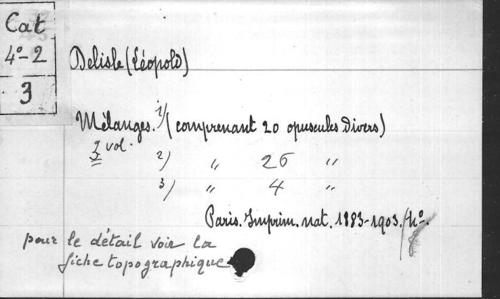 Cat
4°-2
3
Delisle (Léopold)
Mélanges. 1/ (comprenant 20 opuscules divers)
3 vol. 2) " 26 "
3) " 4 "
Paris. Imprim. nat. 1883-1903. 4°.
pour le détail voir la
fiche topographique